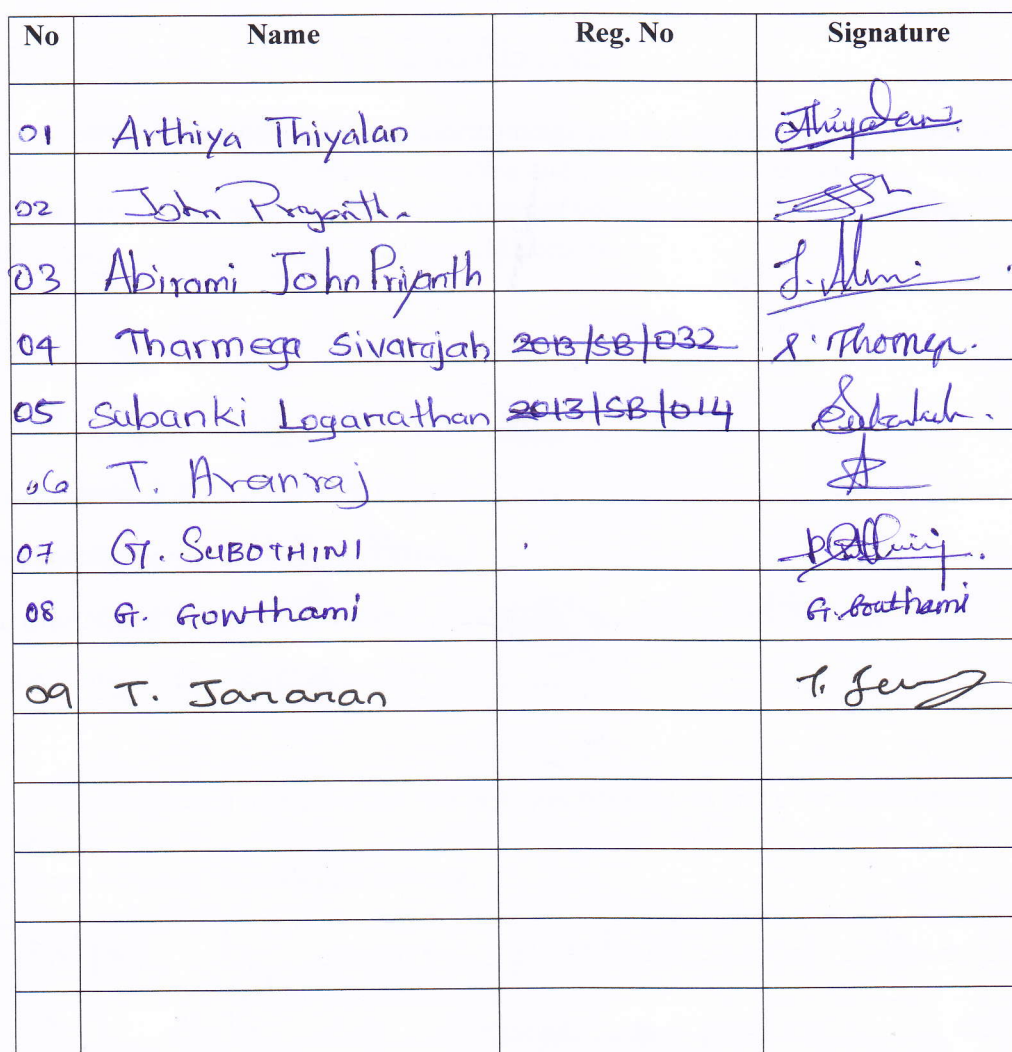 No Name Reg. No Signature
01 Arthiya Thiyalan Thiyalan
02 John Priyanth
03 Abirami John Priyanth
04 Tharmega Sivarajah 2013/SB/032
05 Subanki Loganathan 2013/SB/014
06 T. Aranraj
07 G. SUBOTHINI
08 G. Gowthami G. Gouthami
09 T. Jananan